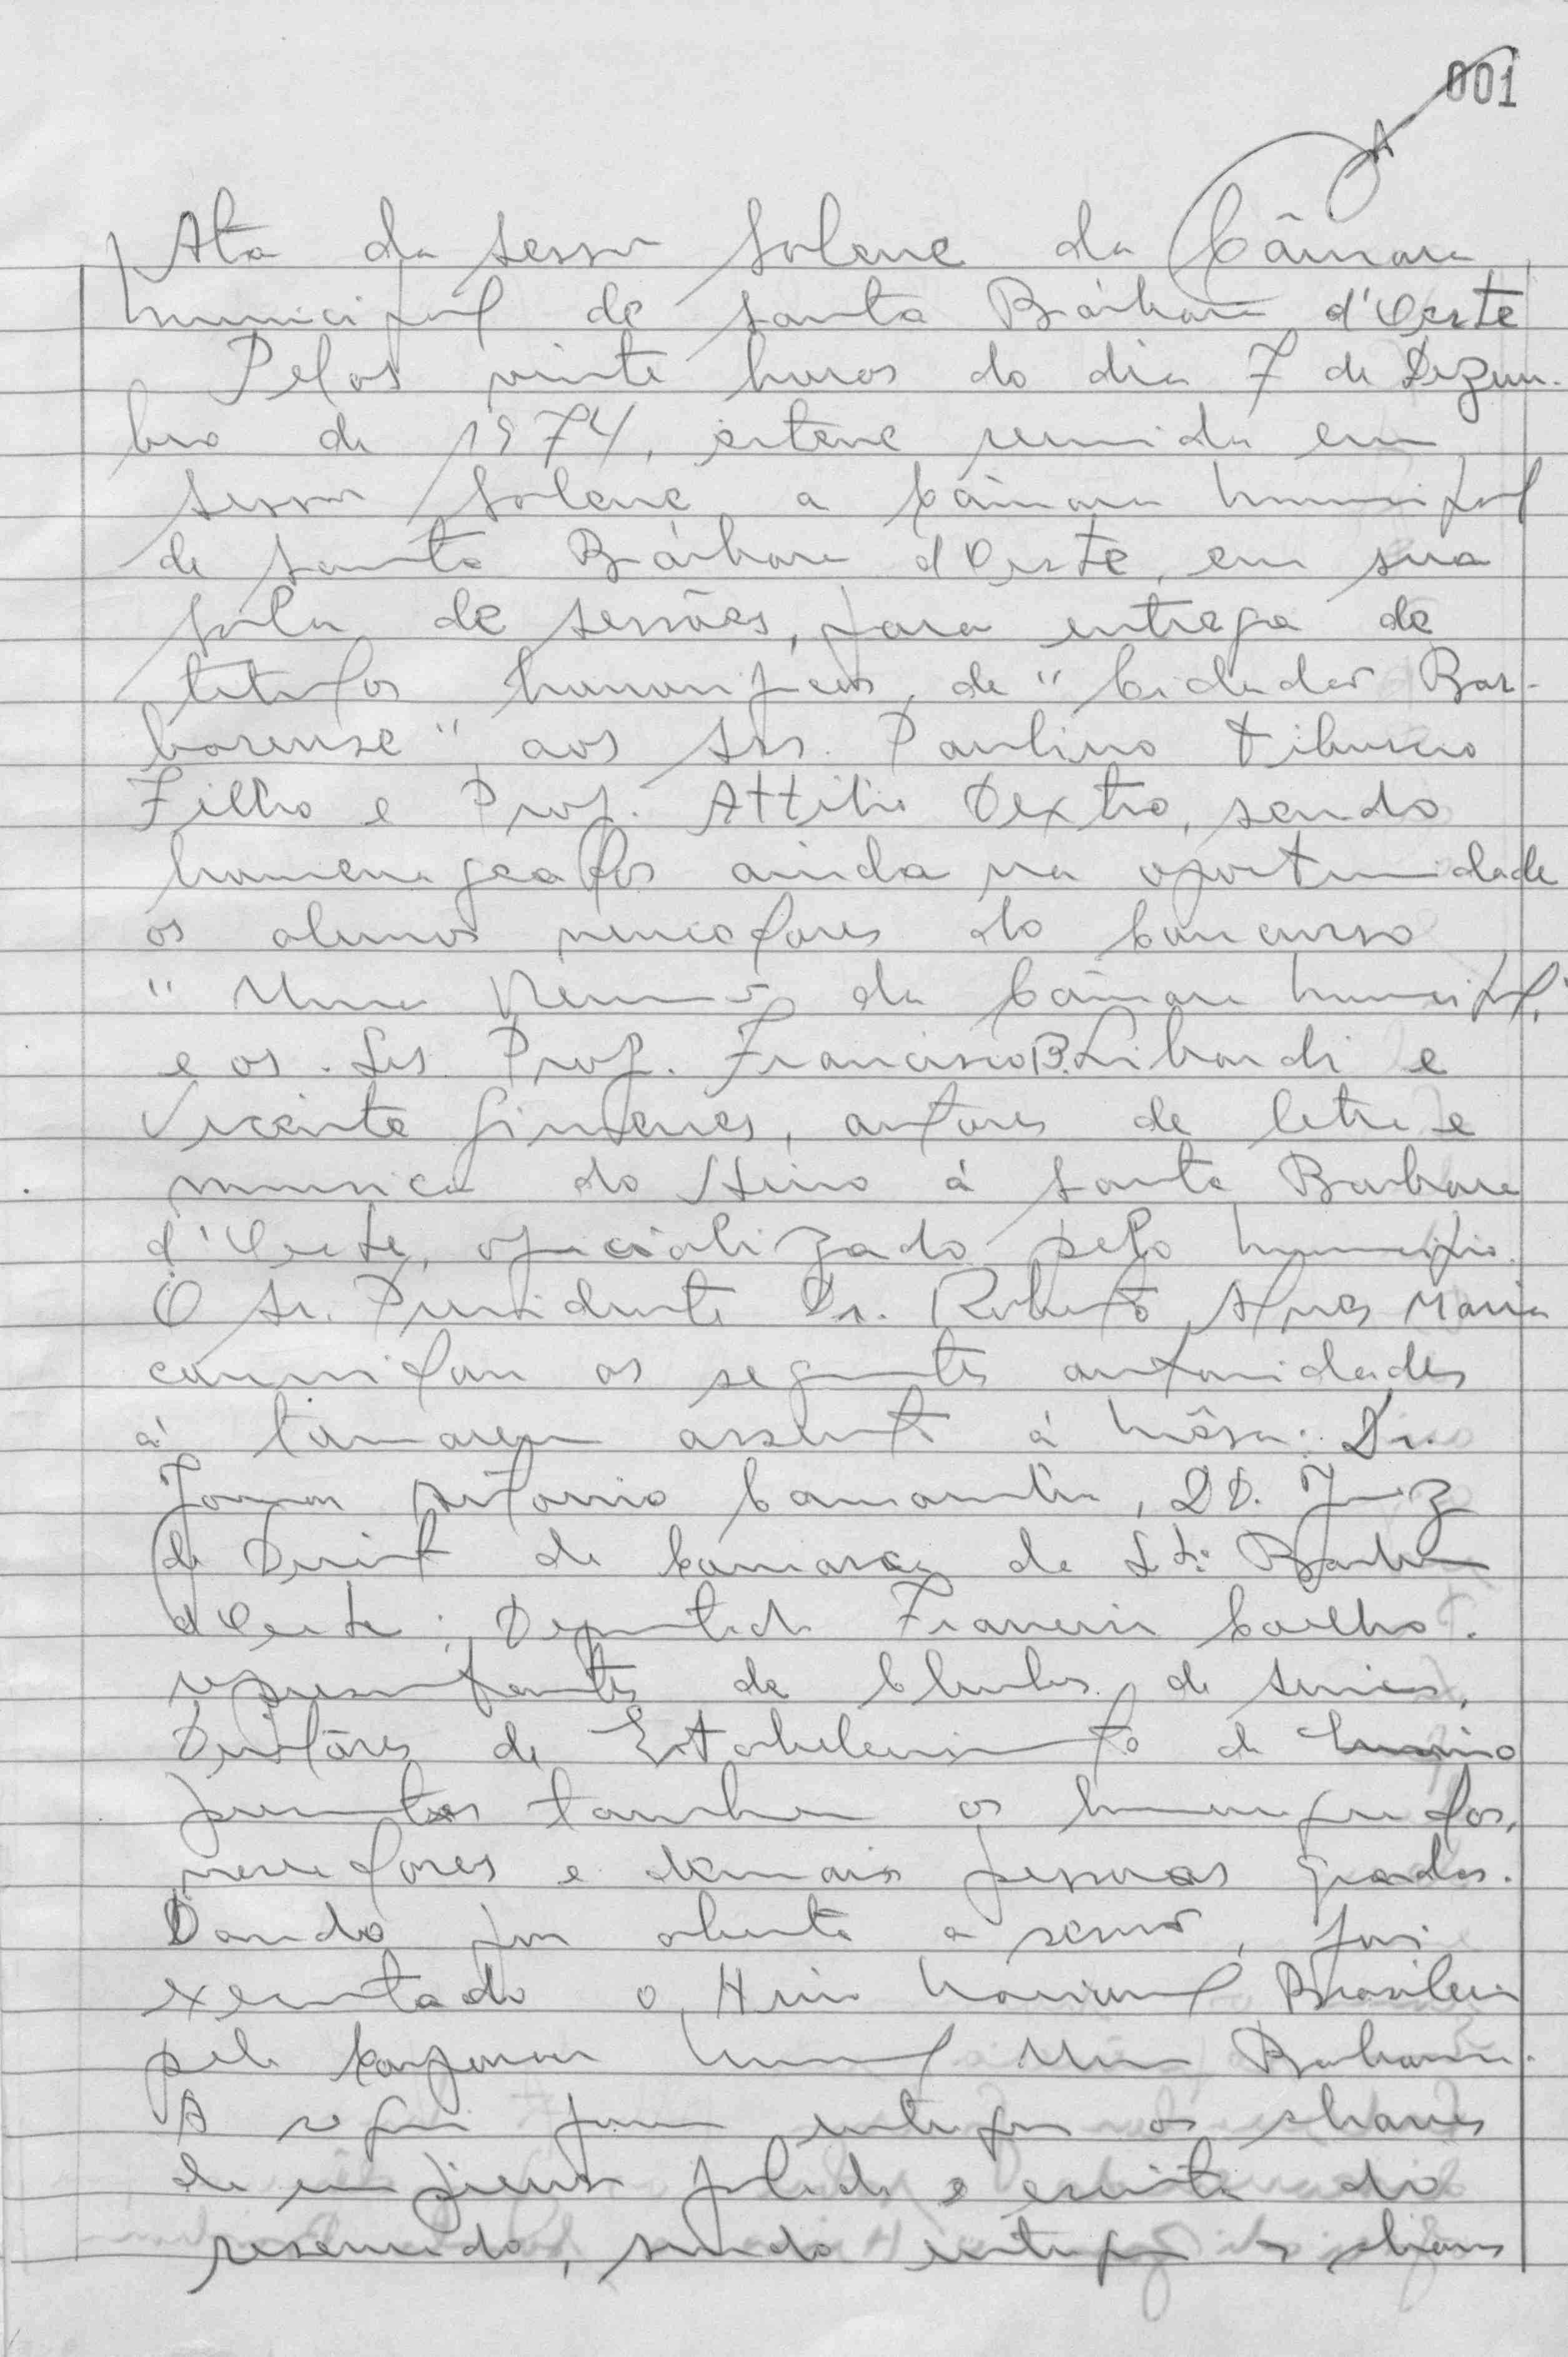 001
Ata da sessão Solene da Câmara
Municipal de Santa Bárbara d'Oeste
Pelas vinte horas do dia 7 de Dezem-
bro de 1974, esteve reunida em
sessão Solene a Câmara Municipal
de Santa Bárbara d'Oeste, em sua
sala de sessões, para entrega de
titulos honorificos, de "Cidadão Bar-
barense", aos Srs. Paulino Tiburcio
Filho e Prof. Attilio Dextro, sendo
homenageados ainda na oportunidade
os alunos vencedores do Concurso
" Uma Reunião da Câmara Municipal,"
e os Srs. Prof. Francisco B. Libardi e
Vicente Gimenes, autores de letra e
musica do Hino á Santa Barbara
d'Oeste, oficializado pelo Municipio.
O Sr. Presidente Dr. Roberto Alves Maria
convidou as seguintes autoridades
á tomarem assento á Mêsa: Dr.
Antonio DD. Juiz
de Direito da Comarca de Sta. Barbara
d'Oeste; Deputado Francisco Coelho.
representantes de Clubes de
Diretôres de Estabelecimento de Ensino
presentes tambem os homenageados,
vereadores e demais pessoas gradas.
Dando por aberta a sessão, foi
executado o Hino Nacional Brasileiro
pela Corporação Musical União Barbarense.
A seguir foram entregues as chaves
da imprensa falada e escrita do
sendo entregue as chaves